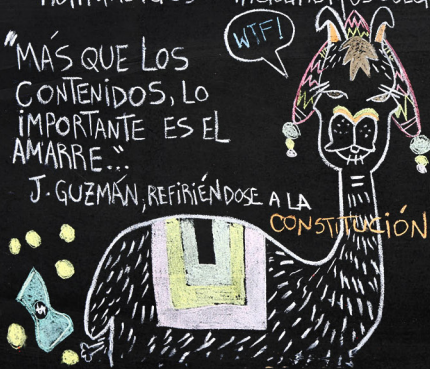 WTF!
"MÁS QUE LOS
CONTENIDOS, LO
IMPORTANTE ES EL
AMARRE"...
J. GUZMÁN, REFIRIÉNDOSE A LA
CONSTITUCIÓN